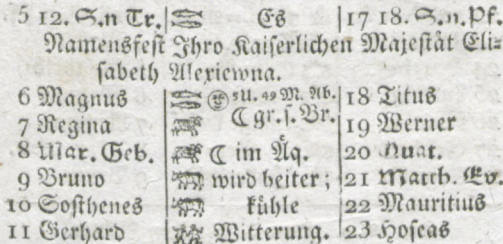 5 12. S.n Tr. Es 17 18. S.n.Pf.
Namensfest Ihro Kaiserlichen Majestät Eli-
sabeth Alexiewna.
6 Magnus 5 U. 49 M. Ab. 18 Titus
7 Regina ☾ gr. s. Br. 19 Werner
8 Mar. Geb. ☾ im Äq. 20 Quat.
9 Bruno wird heiter; 21 Matth. Ev.
10 Sosthenes kühle 22 Mauritius
11 Gerhard Witterung. 23 Hoseas